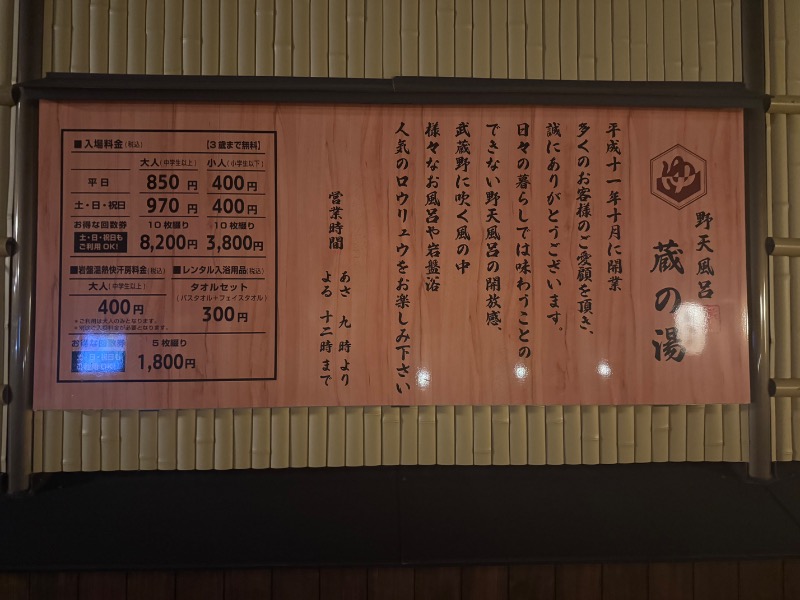 野天風呂
蔵の湯
平成十一年十月に開業
多くのお客様のご愛顧を頂き、
誠にありがとうございます。
日々の暮らしでは味わうことの
できない野天風呂の開放感、
武蔵野に吹く風の中
様々なお風呂や岩盤浴
人気のロウリュウをお楽しみ下さい
営業時間
あさ 九 時より
よる 十二時まで
■入場料金(税込) 【3歳まで無料】
大人(中学生以上) 小人(小学生以下)
平日 850円 400円
土・日・祝日 970円 400円
お得な回数券 10枚綴り 10枚綴り
土・日・祝日も
ご利用OK! 8,200円 3,800円
■岩盤温熱快汗房料金(税込)
大人(中学生以上)
400円
*ご利用は大人のみとなります。
*別途ご入浴料金が必要となります。
お得な回数券 5枚綴り
土・日・祝日も
ご利用OK! 1,800円
■レンタル入浴用品(税込)
タオルセット
(バスタオル+フェイスタオル)
300円